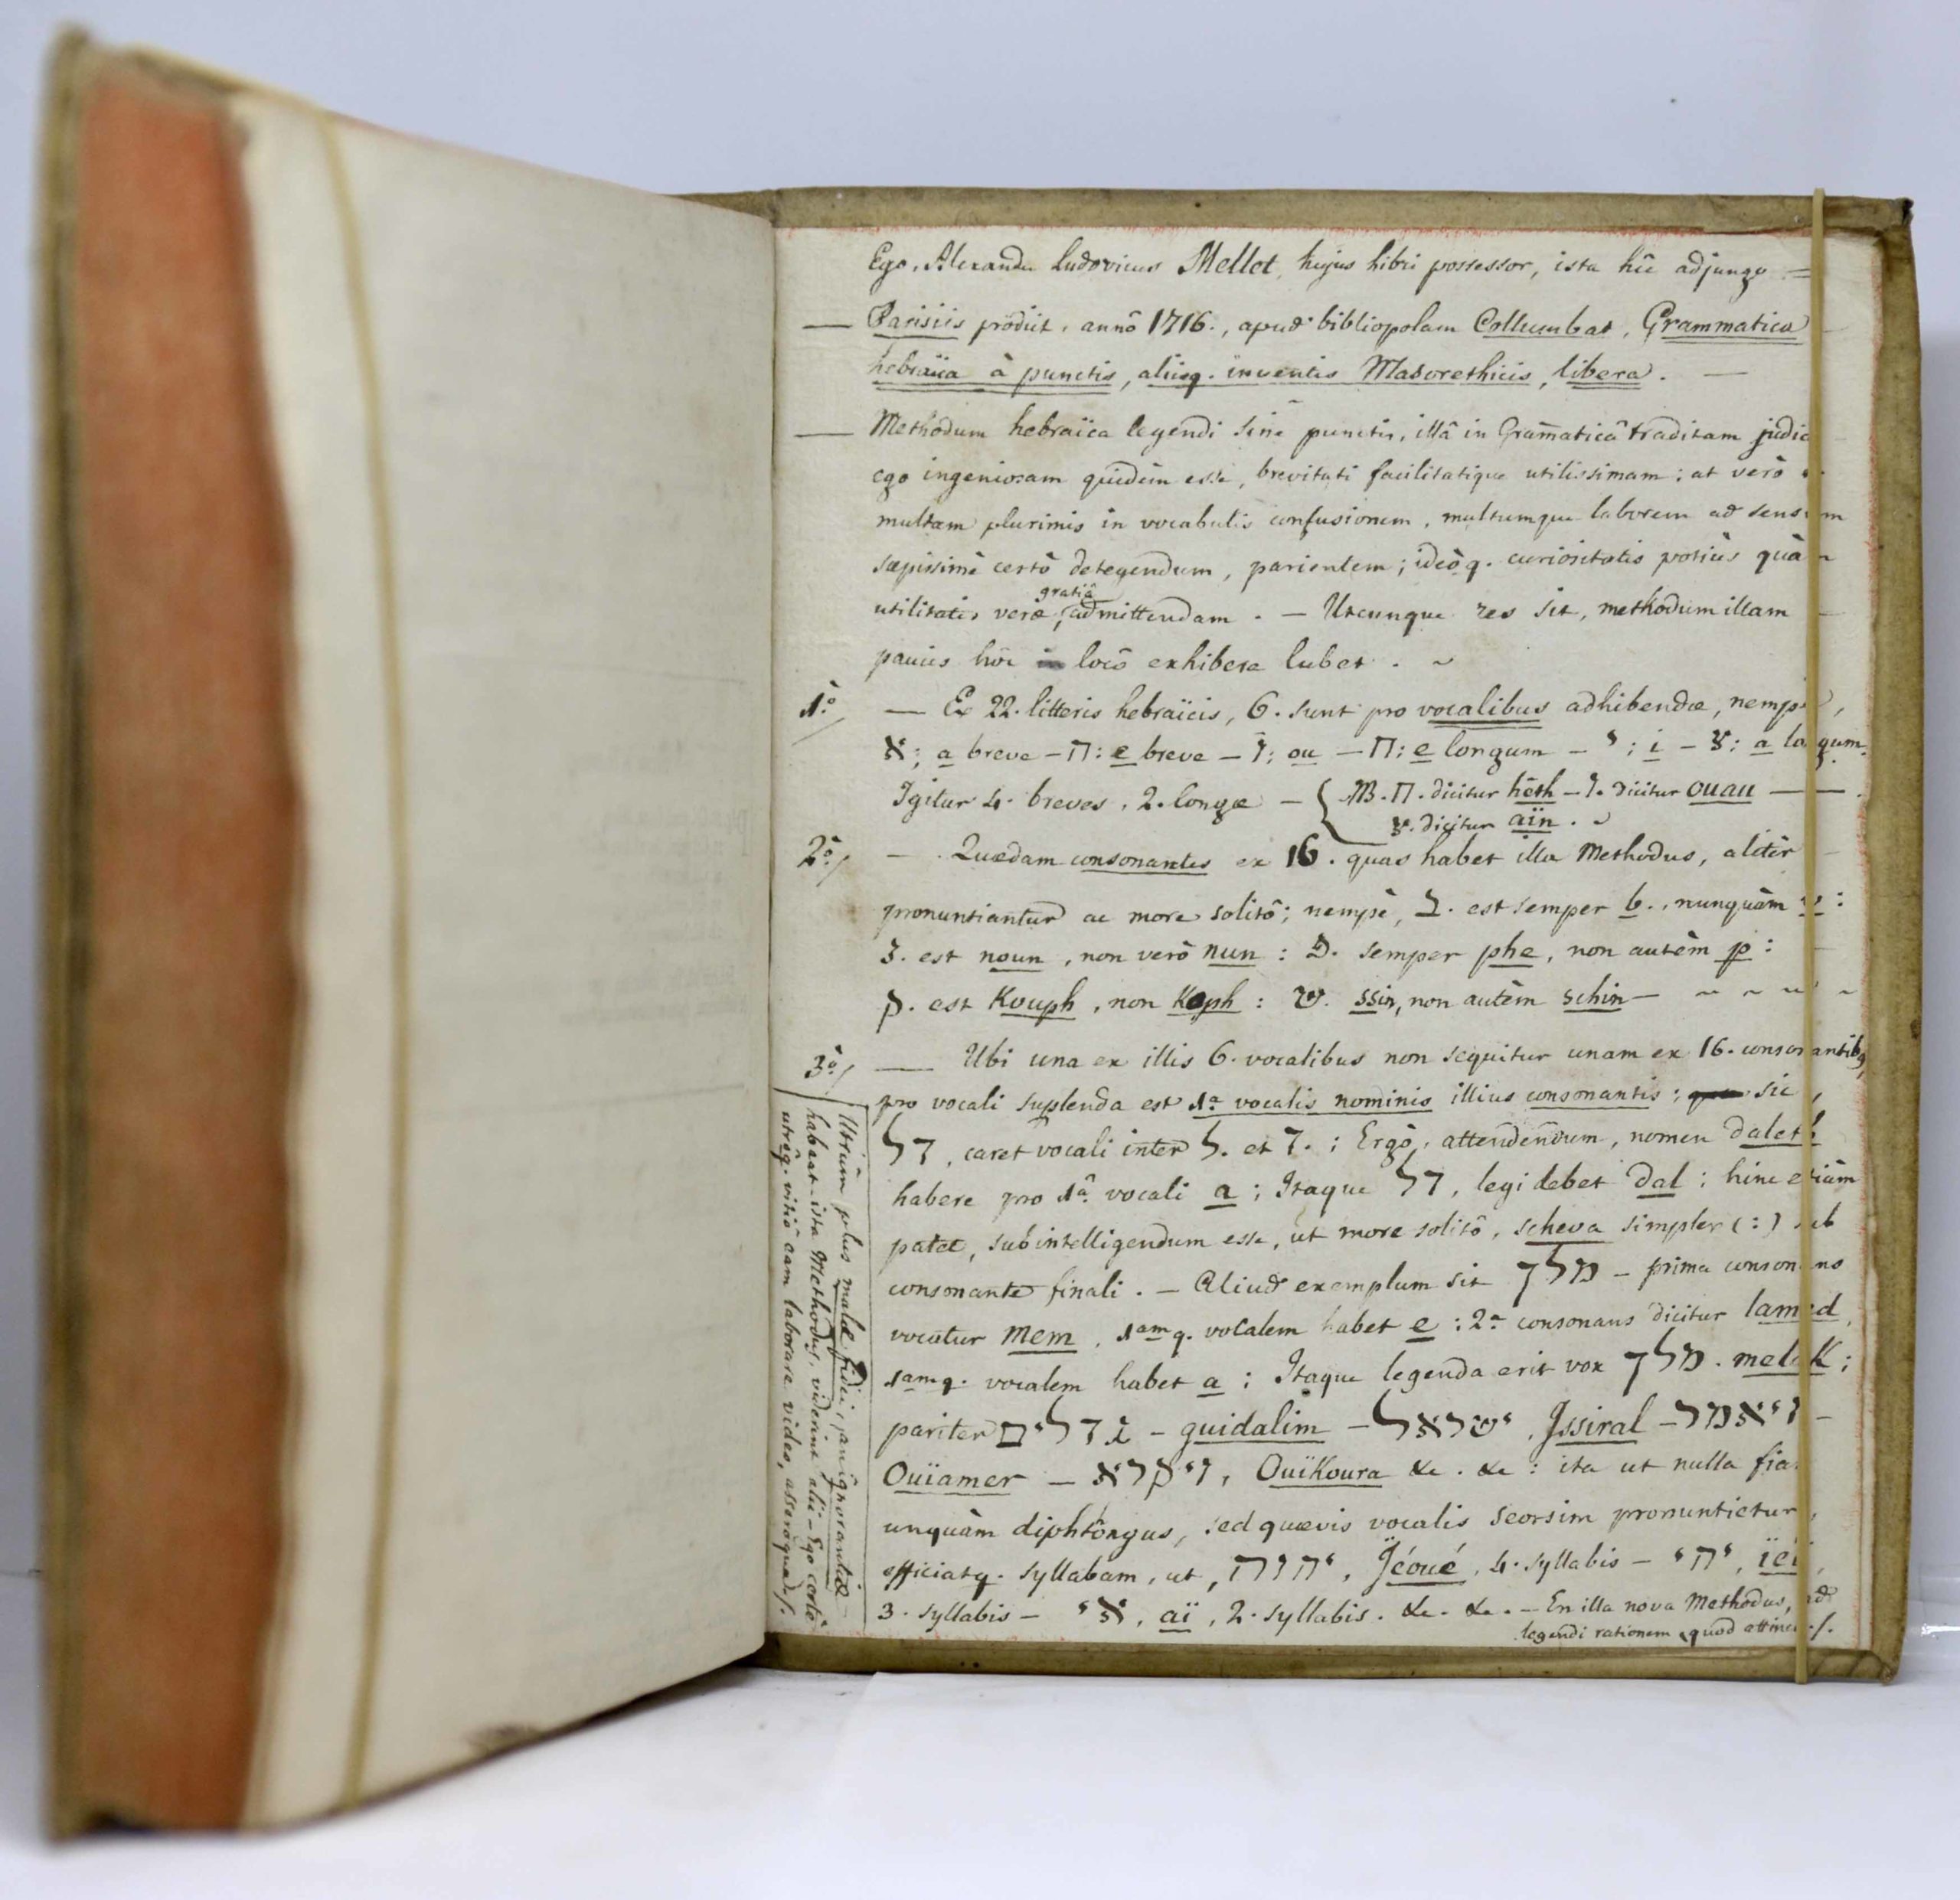 Ego, Alexander Ludovicus Mellet, hujus libri possessor, ista hîc adjungo =
— Parisiis prodiit, annô 1716., apud bibliopolam Collumbat, Grammatica
hebraïca à punctis, aliisq. inventis Masorethicis, libera. —
— Methodum hebraïca legendi sinè punctis, illâ in Gram̄aticâ traditam judico
ego ingeniosam quidèm esse, brevitati facilitatique utilissimam; at verò
multam plurimis in vocabulis confusionem, multumque laborem ad sensum
sæpissimè certò detegendum, parientem; ideòq. curiositatis potiùs quàm
utilitatis veræ gratiâ admittendam. — Utcunque res sit, methodum illam —
paucis hôc locô exhibere lubet. ~
1.º/ — Ex 22. litteris hebraïcis, 6. sunt pro vocalibus adhibendæ, nempè,
א; a breve – ה: e breve – ו: ou – ח: e longum – י: i – ע: a longum.
Igitur 4. breves, 2. longæ – { NB. ח. dicitur hèth – ו. dicitur ouau —
ע. dicitur aïn. ~
2.º/ — Quædam consonantes ex 16. quas habet illa Methodus, alitèr —
pronuntiantur ac more solitô; nempè, ב. est semper b., nunquàm v:
נ. est noun, non verò nun: פ. semper phe, non autèm p: —
ק. est Kouph, non Koph: ש. ssin, non autèm schin — ~ ~ ~ ~
3.º/ — Ubi una ex illis 6. vocalibus non sequitur unam ex 16. consonantibq,
pro vocali suplenda est 1.a vocalis nominis illius consonantis; sic,
דל, caret vocali inter ל. et ד.; Ergò, attendendum, nomen daleth
habere pro 1â vocali a; Itaque דל, legi debet dal; hinc etiàm
patet, subintelligendum esse, ut more solitô, scheva simplex (:) sub
consonante finali. — Aliud exemplum sit מלך – prima consonans
vocatur mem, 1amq. vocalem habet e: 2.a consonans dicitur lamed,
1amq. vocalem habet a; Itaque legenda erit vox מלך. melaK;
pariter גדלים – guidalim – ישראל, Issiral – ויאמר –
Ouïamer – ויקרא, OuïKoura &c. &c: ita ut nulla fiat
unquàm diphtôngus, sed quævis vocalis seorsim pronuntietur,
efficiatq. syllabam, ut, יהוה, Jéoué, 4. syllabis – יהי, ïeï,
3. syllabis – אי, aï, 2. syllabis. &c. &c. – En illa nova Methodus, ad
legendi rationem quod attinet./.
Utrùm plus malæ fidei, an ignorantiæ
habeat ista Methodus, viderint alii – Ego certè
utrôq. vitiô eam laborare video, asseroque./.